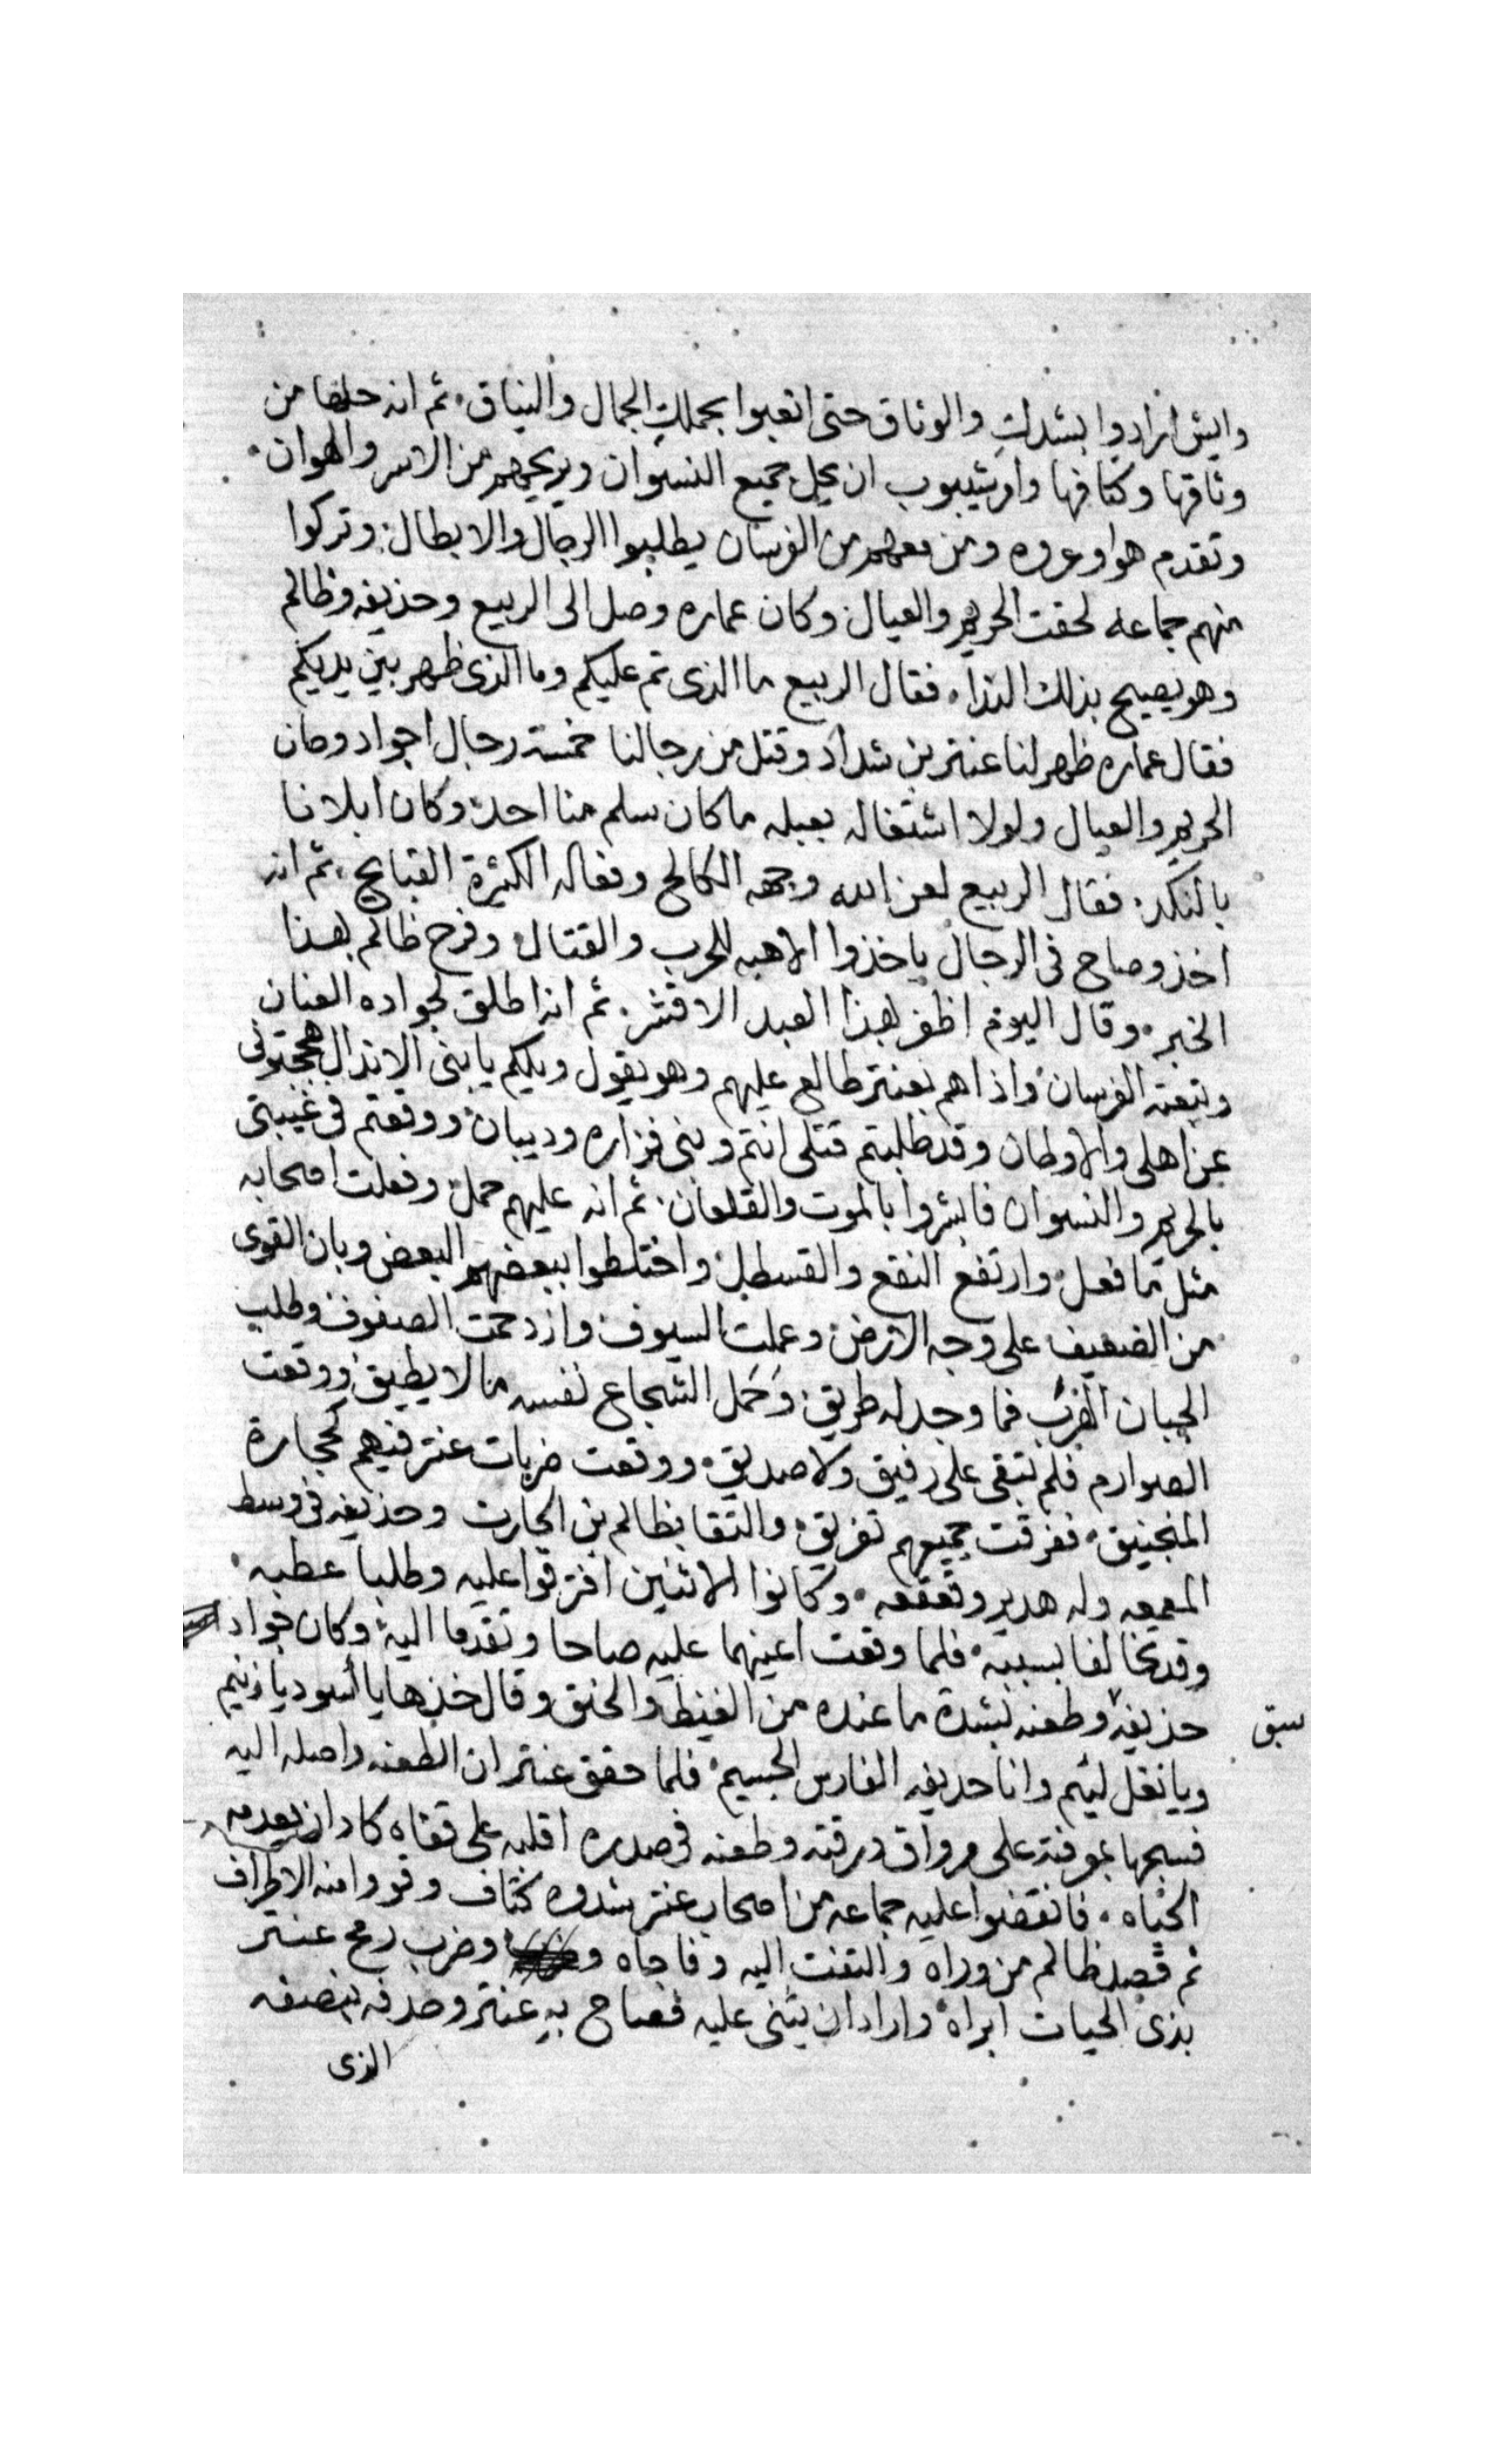 وايش ارادوا بشدك والوثاق حتى اتعبوا بحملك الجمال والنياق. ثم انه حلها من
وثاقها وكتافها وامر شيبوب ان يحل جميع النسوان ويريحهم من الاسر والهوان.
وتقدم هو وعروه ومن معهم من الفرسان يطلبوا الرجال والابطال. وتركوا
منهم جماعه لحقت الحريم والعيال وكان عماره وصل الى الربيع وحذيفه وظالم
وهو يصيح بذلك الندا. فقال الربيع ما الذى تم عليكم وما الذى ظهر بين يديكم
فقال عماره ظهر لنا عنتر بن شداد وقتل من رجالنا خمسة رجال اجواد وصان
الحريم والعيال ولولا اشتغاله بعبله ما كان سلم منا احد وكان ابلانا
بالنكد. فقال الربيع لعن الله وجهه الكالح وفعاله الكثيرة القبايح. ثم انه
اخذ وصاح فى الرجال ياخذوا الاهبه للحرب والقتال وفرح ظالم بهذا
الخبر. وقال اليوم اظفر بهذا العبد الاقشر. ثم انه اطلق لجواده العنان
وتبعته الفرسان واذا هم بعنتر طالع عليهم وهو يقول ويلكم يا بنى الانذال هججتونى
عن اهلى والاوطان وقد طلبتم قتلى انتم وبنى فزاره وديبان ووقعتم فى غيبتى
بالحريم والنسوان فابشروا بالموت والقلعان. ثم انه عليهم حمل وفعلت اصحابه
مثل ما فعل وارتفع النقع والقسطل واختلطوا ببعضهم البعض وبان القوى
من الضعيف على وجه الارض وعملت السيوف وازدحمت الصفوف وطلب
الجبان الهرب فما وجد له طريق. وحمل الشجاع نفسه ما لا يطيق ووقعت
الصوارم فلم تبقى على رفيق ولا صديق. ووقعت ضربات عنتر فيهم كحجارة
المنجنيق. ففرقت جميعهم تفريق. والتقا بظالم بن الحارث وحذيفه فى وسط
المعمعه وله هدير وقعقعه. وكانوا الاثنين افترقوا عليه وطلبا عطبه.
وقد تحالفا بسببه. فلما وقعت اعينهما عليه صاحا وتقدما اليه وكان جواد
سبق حذيفه وطعنه بشدة ما عنده من الغيظ والحنق وقال خذها يا اسود يا زنيم
ويا نغل ليئم وانا حديفه الفارس الجسيم. فلما حقق عنتر ان الطعنه واصله اليه
فسبحها بموفته على مرواق درقته وطعنه فى صدره اقلبه على قفاه كاد ان يعدمه
الحياه. فانقضوا عليه جماعه من اصحاب عنتر شدوه كتاف وقووا منه الاطراف
ثم قصد ظالم من وراه والتفت اليه وفاجاه وضرب رمح عنتر
بذى الحيات ابراه واراد ان يثنى عليه فصاح به عنتر وصدفه بنصفه
الذى